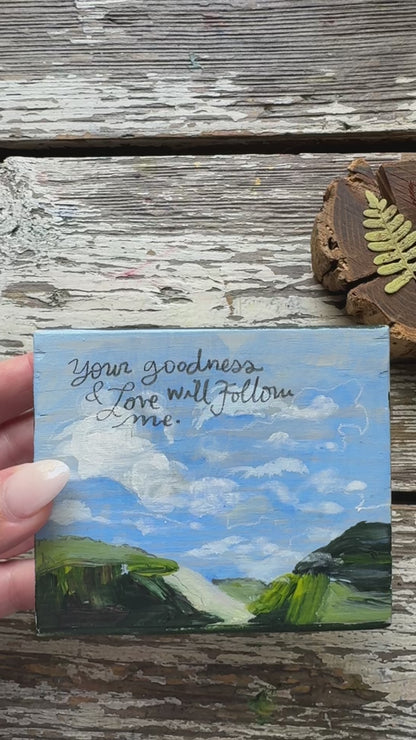 Your goodness
& Love will Follow
me.